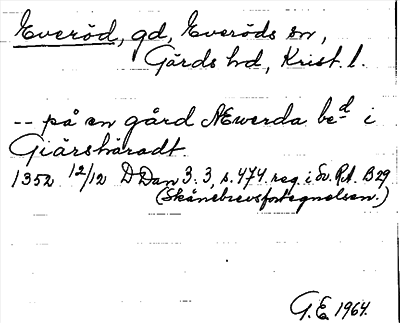 Everöd, gd, Everöds sn,
Gärds hd, Krist. l.
-- på en gård Æwerda be<sup>d</sup> i
Giärshäradt
1352 12/12 D Dan 3:3, s. 474. reg. i Sv. RA. B 29
(Skånebrevsfortegnelsen.)
G.E. 1964.